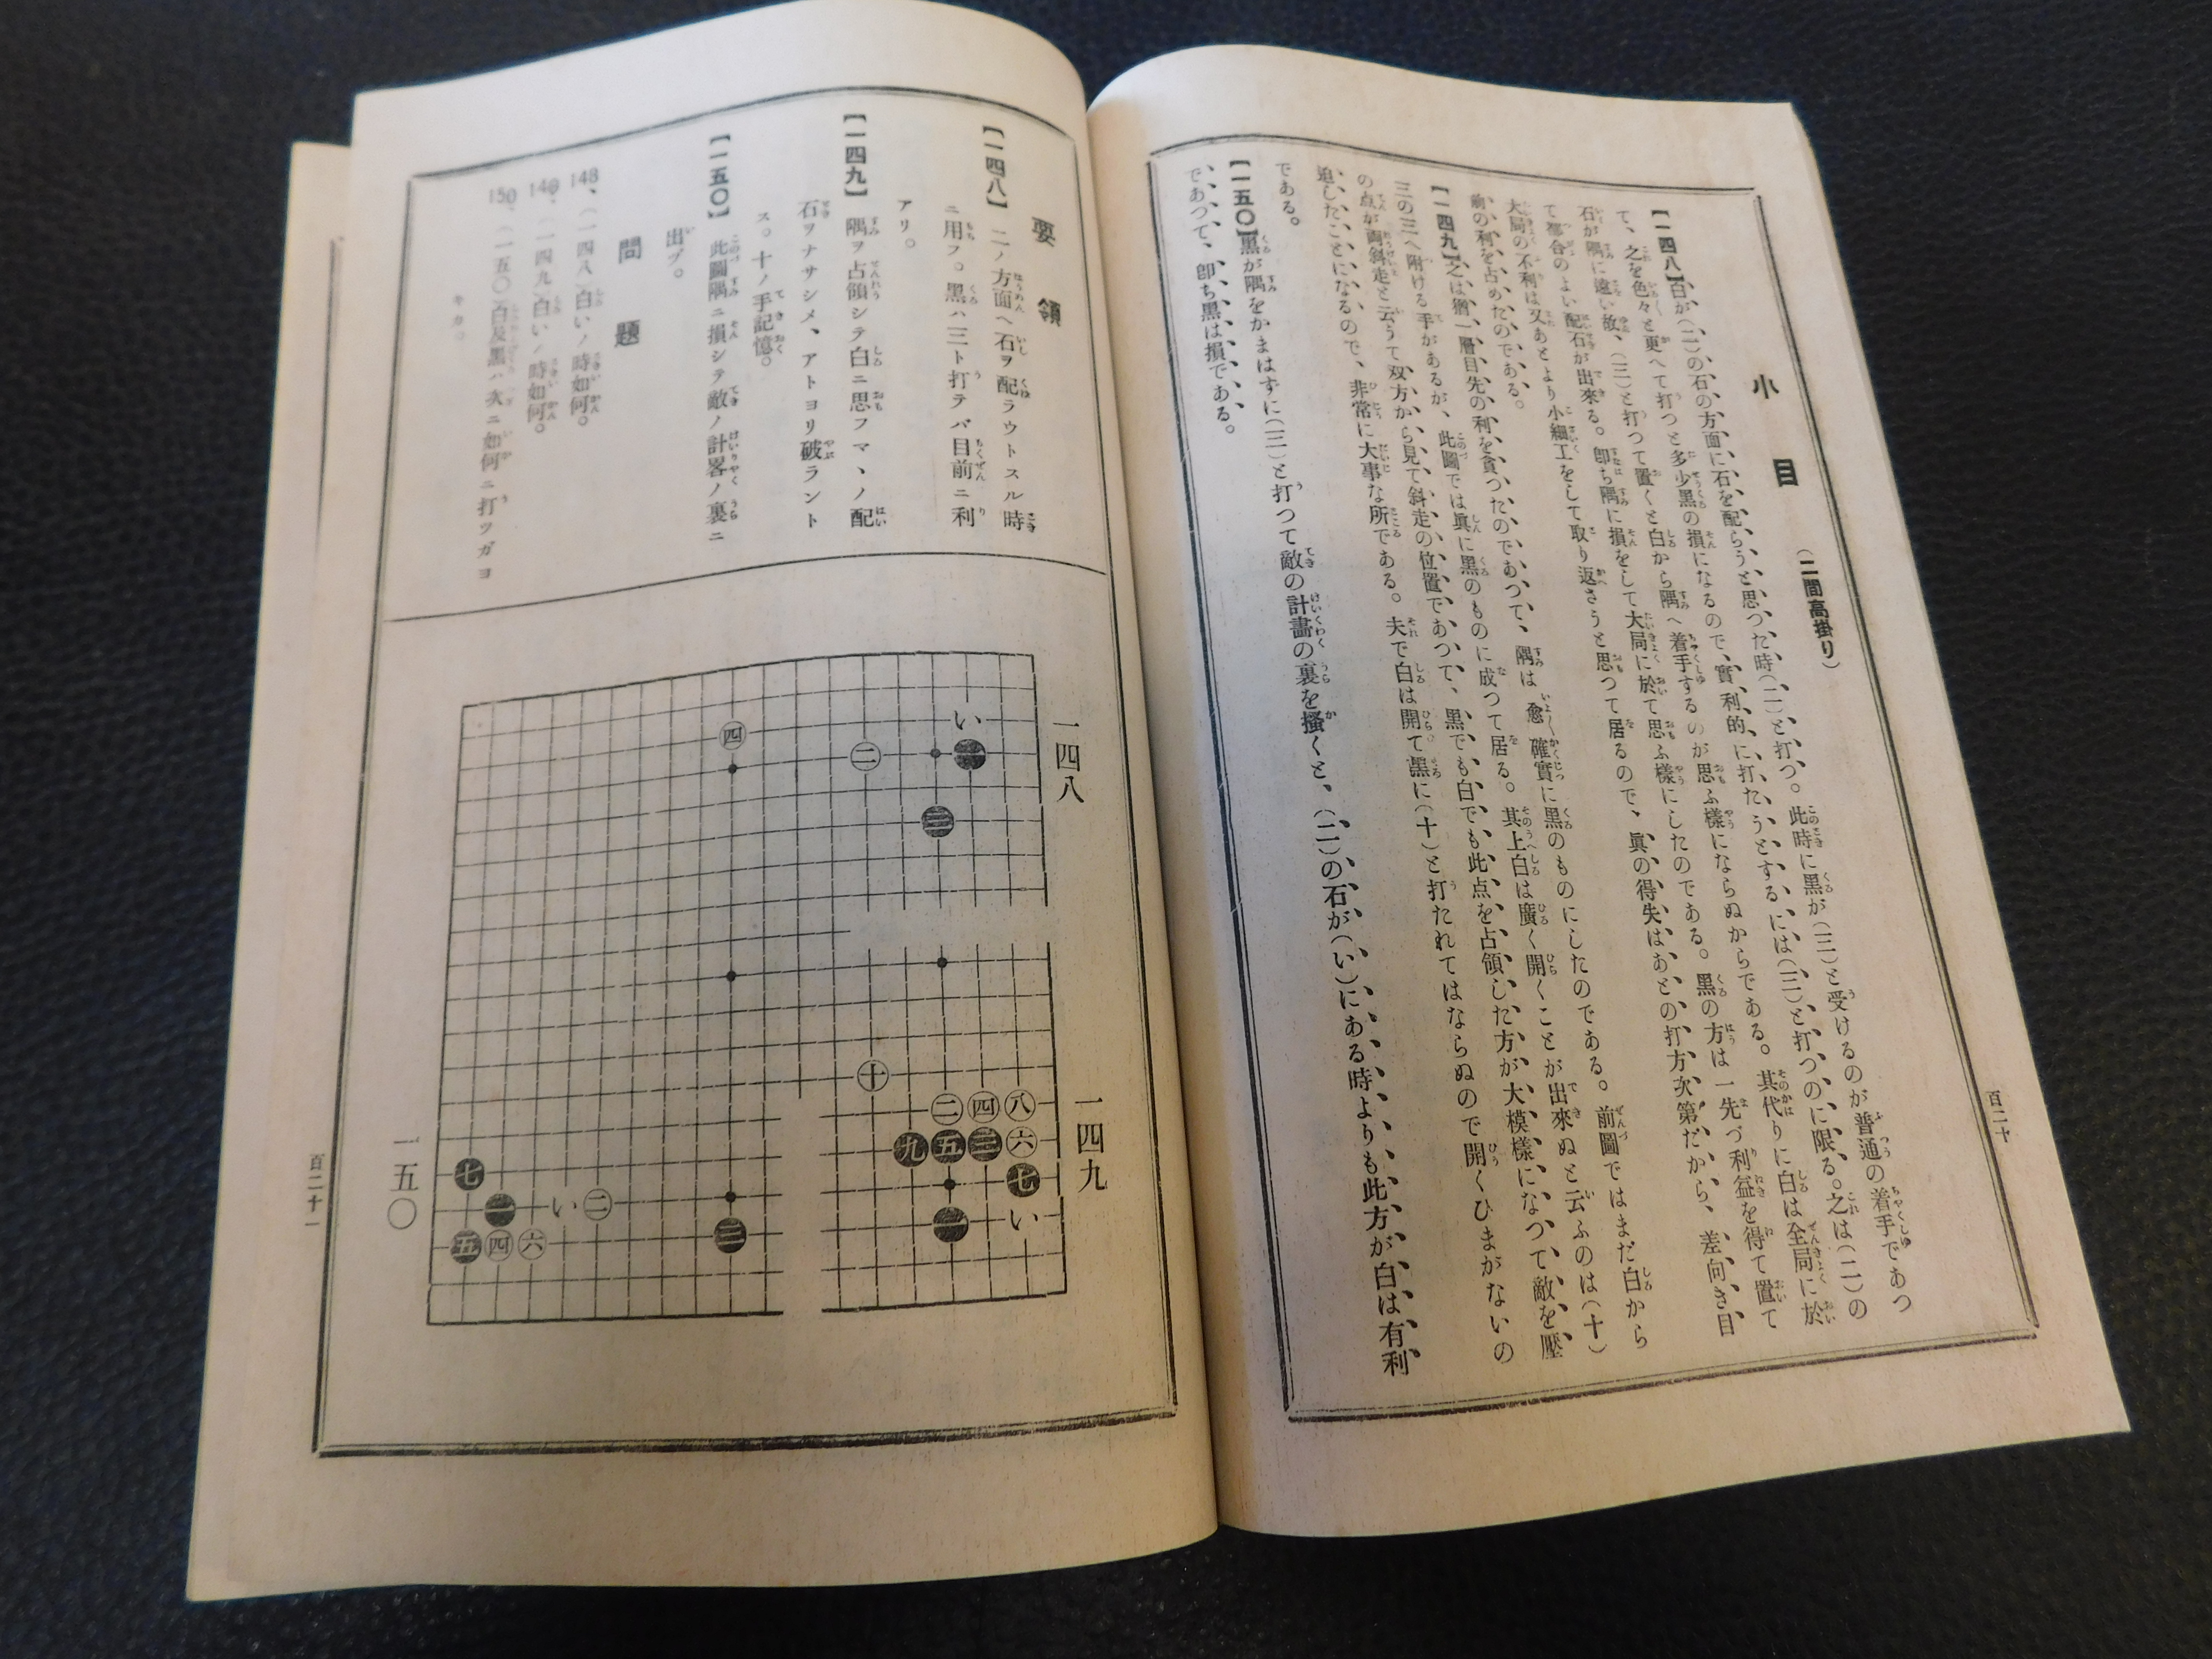 小目
(二間高掛り)
【一四八】白が(二)の石の方面に石を配らうと思つた時(二)と打つ。此時に黒が(三)と受けるのが普通の着手であつ
て、之を色々と更へて打つと多少黒の損になるので、實利的に打たうとするには(三)と打つのに限る。之は(二)の
石が隅に遠い故、(三)と打つて置くと白から隅へ着手するのが思ふ樣にならぬからである。其代りに白は全局に於
て都合のよい配石が出來る。卽ち隅に損をして大局に於て思ふ樣にしたのである。黒の方は一先づ利益を得て置て
大局の不利は又あとより小細工をして取り返さうと思つて居るので、眞の得失はあとの打方次第だから、差向き目
前の利を占めたのである。
【一四九】之は猶一層目先の利を貪つたのであつて、隅は愈確實に黒のものにしたのである。前圖ではまだ白から
三の三へ附ける手があるが、此圖では眞に黒のものに成つて居る。其上白は廣く開くことが出來ぬと云ふのは(十)
の点が両斜走と云うて双方から見て斜走の位置であつて、黒でも白でも此点を占領した方が大模樣になつて敵を壓
迫したことになるので、非常に大事な所である。夫で白は開て黒に(十)と打たれてはならぬので開くひまがないの
である。
【一五〇】黒が隅をかまはずに(三)と打つて敵の計畫の裏を搔くと、(二)の石が(い)にある時よりも此方が白は有利
であつて、卽ち黒は損である。
百二十
要領
【一四八】二ノ方面ヘ石ヲ配ラウトスル時
ニ用フ。黒ハ三ト打テバ目前ニ利
アリ。
【一四九】隅ヲ占領シテ白ニ思フマヽノ配
石ヲナサシメ、アトヨリ破ラント
ス。十ノ手記憶。
【一五〇】此圖隅ニ損シテ敵ノ計畧ノ裏ニ
出ヅ。
問題
148、(一四八)白いノ時如何。
149、(一四九)白いノ時如何。
150、(一五〇)白及黒ハ次ニ如何ニ打ツガヨ
キカ。
一四八
い
四
二
一
三
一四九
十
二
四
八
九
五
三
六
七
一
い
一五〇
七
一
い
二
三
五
四
六
百二十一